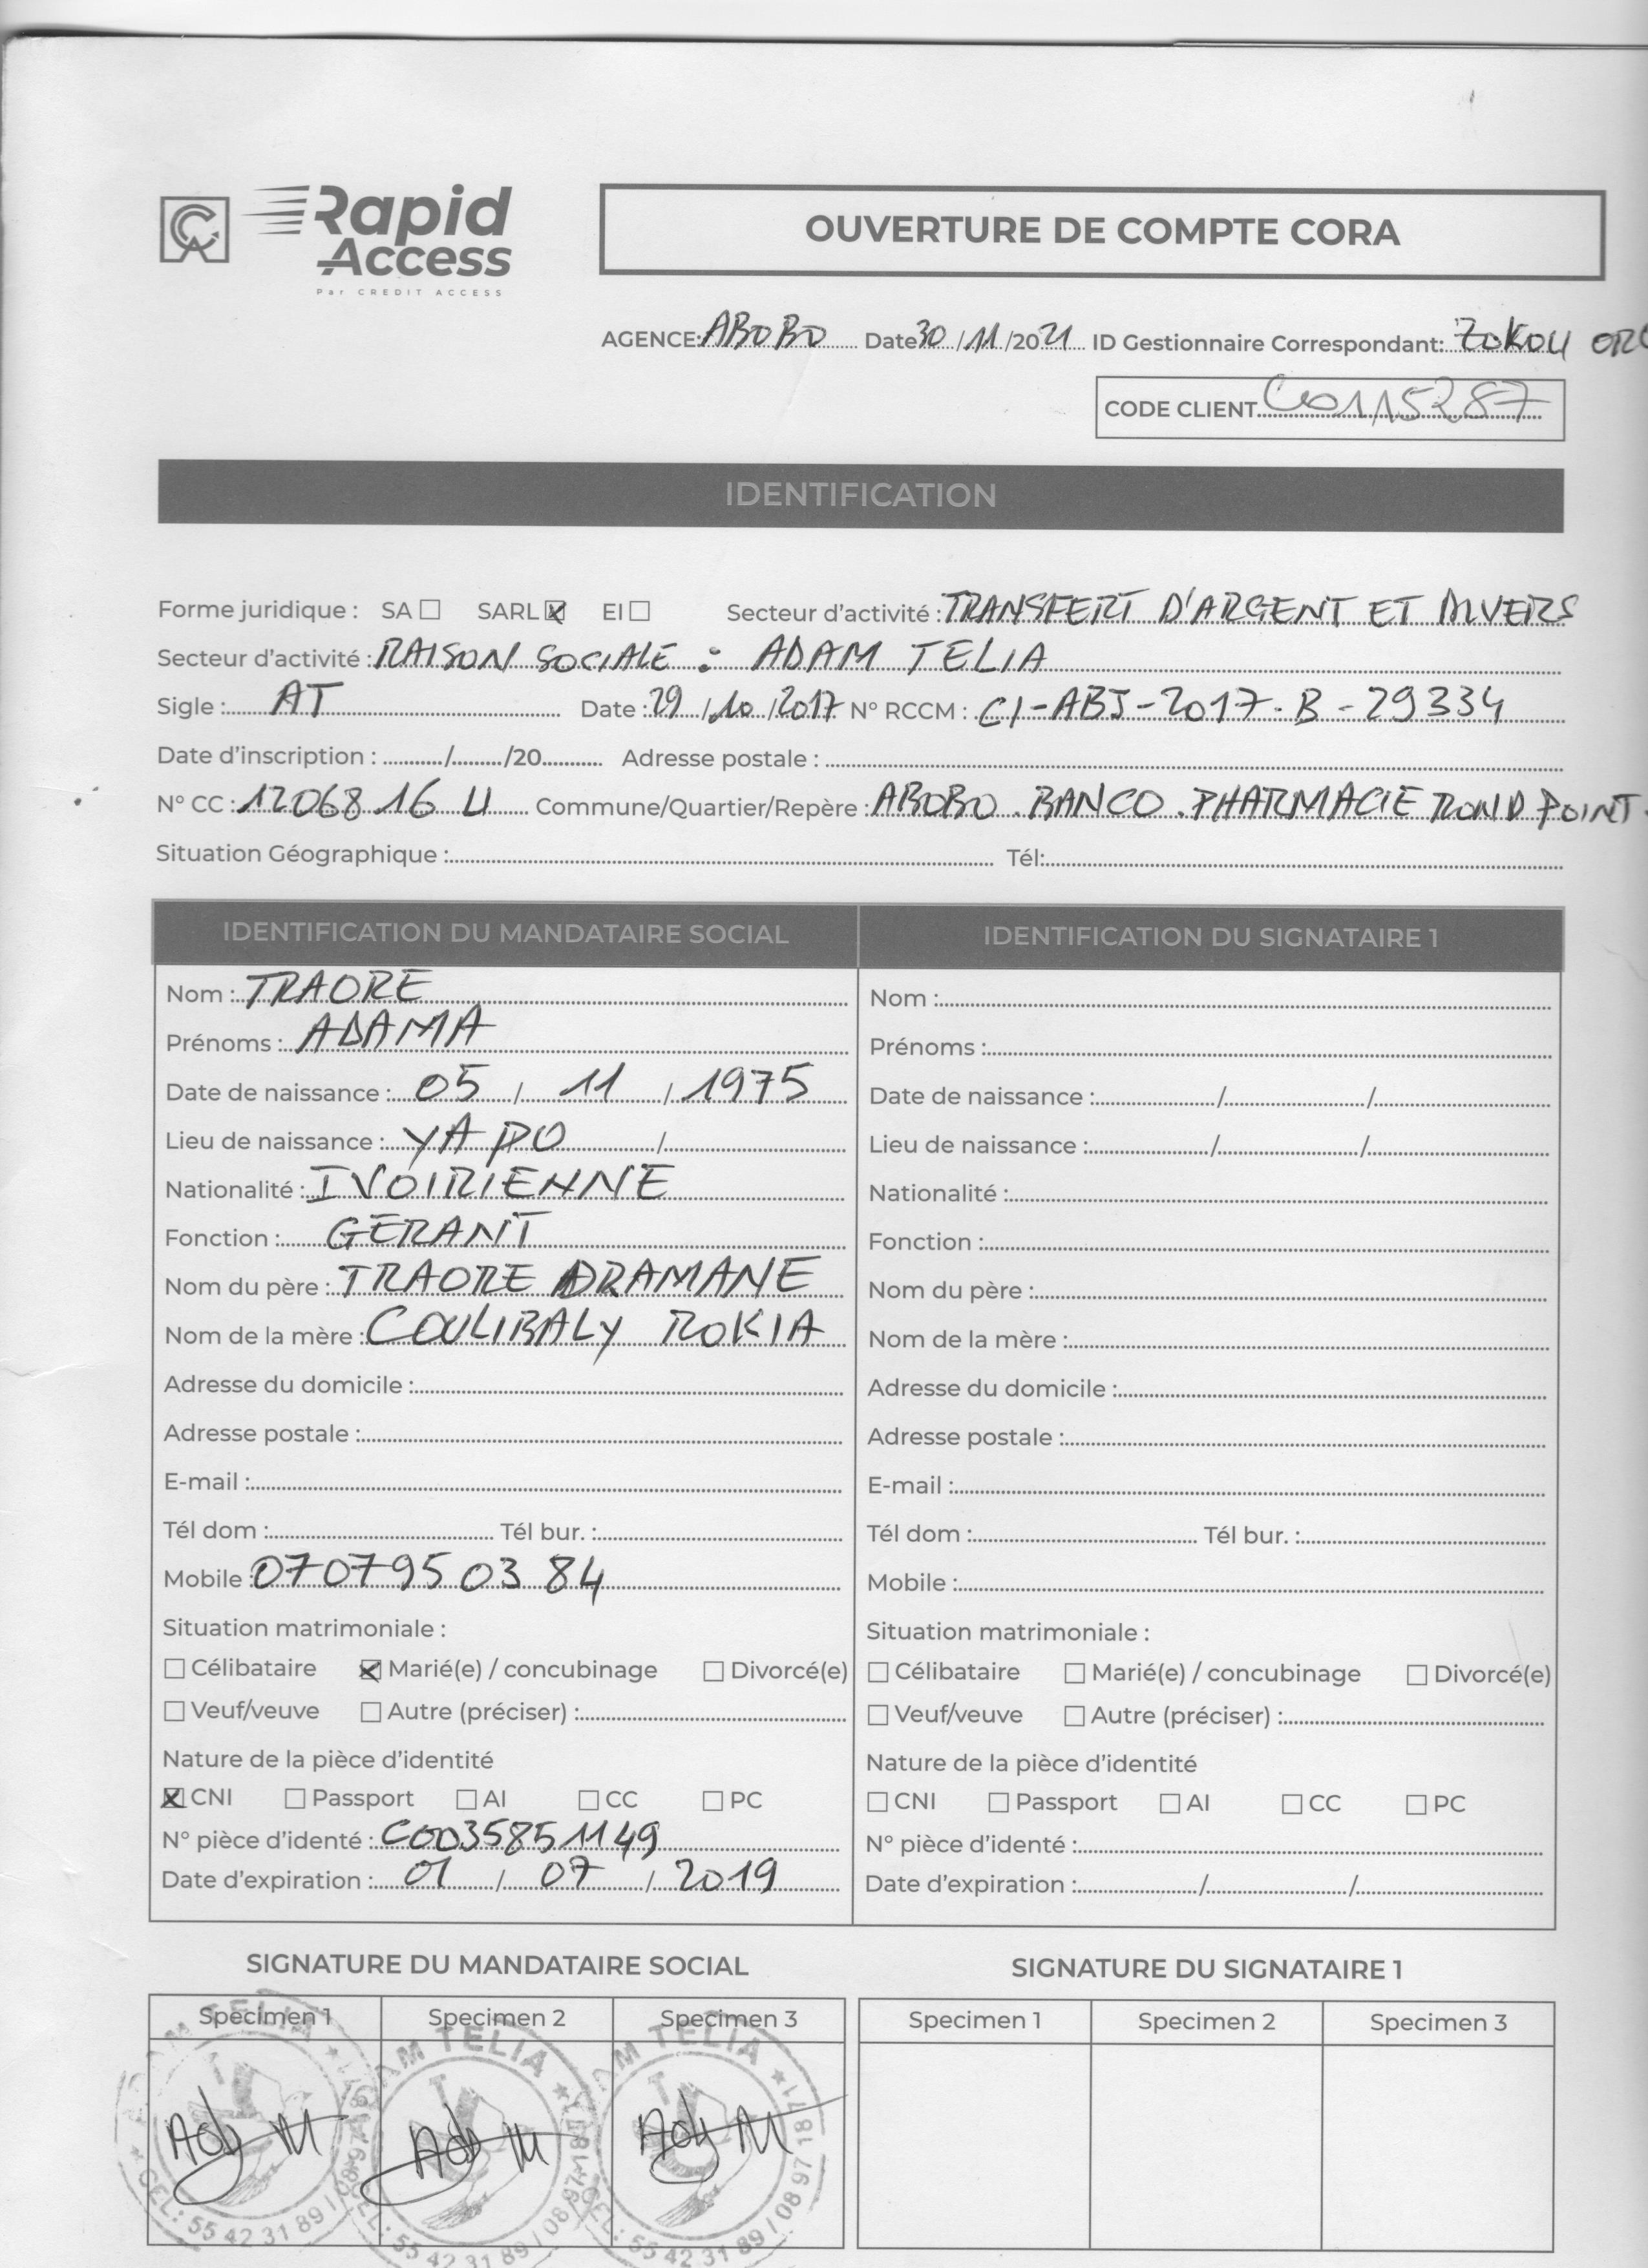 Rapid
Access
Par CREDIT ACCESS
OUVERTURE DE COMPTE CORA
AGENCE: ABOBO Date 30/11/2021 ID Gestionnaire Correspondant: ZOKOU
CODE CLIENT C0115287
IDENTIFICATION
Forme juridique : SA ☐ SARL ☒ EI ☐ Secteur d'activité : TRANSFERT D'ARGENT ET DIVERS
Secteur d'activité : RAISON SOCIALE : ADAM TELIA
Sigle : AT Date : 29/10/2017 N° RCCM : CI-ABJ-2017-B-29334
Date d'inscription : ........./........./20.......... Adresse postale :
N° CC : 1206816 U Commune/Quartier/Repère : ABOBO.BANCO.PHARMACIE ROND POINT
Situation Géographique : Tél:
IDENTIFICATION DU MANDATAIRE SOCIAL
Nom : TRAORE
Prénoms : ADAMA
Date de naissance : 05 / 11 / 1975
Lieu de naissance : YAPO /
Nationalité : IVOIRIENNE
Fonction : GERANT
Nom du père : TRAORE DRAMANE
Nom de la mère : COULIBALY ROKIA
Adresse du domicile :
Adresse postale :
E-mail :
Tél dom : Tél bur. :
Mobile : 0707950384
Situation matrimoniale :
☐ Célibataire ☒ Marié(e) / concubinage ☐ Divorcé(e)
☐ Veuf/veuve ☐ Autre (préciser) :
Nature de la pièce d'identité
☒ CNI ☐ Passport ☐ AI ☐ CC ☐ PC
N° pièce d'identé : C0035851149
Date d'expiration : 01 / 07 / 2019
IDENTIFICATION DU SIGNATAIRE 1
Nom :
Prénoms :
Date de naissance : / /
Lieu de naissance : / /
Nationalité :
Fonction :
Nom du père :
Nom de la mère :
Adresse du domicile :
Adresse postale :
E-mail :
Tél dom : Tél bur. :
Mobile :
Situation matrimoniale :
☐ Célibataire ☐ Marié(e) / concubinage ☐ Divorcé(e)
☐ Veuf/veuve ☐ Autre (préciser) :
Nature de la pièce d'identité
☐ CNI ☐ Passport ☐ AI ☐ CC ☐ PC
N° pièce d'identé :
Date d'expiration : / /
SIGNATURE DU MANDATAIRE SOCIAL
Specimen 1 Specimen 2 Specimen 3
TELIA
CEL: 55 42 31 89 / 08
AM TELIA
55 42 31 89 / 08
M TELIA
CEL: 55 42 31 89 / 08 97 18 71
SIGNATURE DU SIGNATAIRE 1
Specimen 1 Specimen 2 Specimen 3